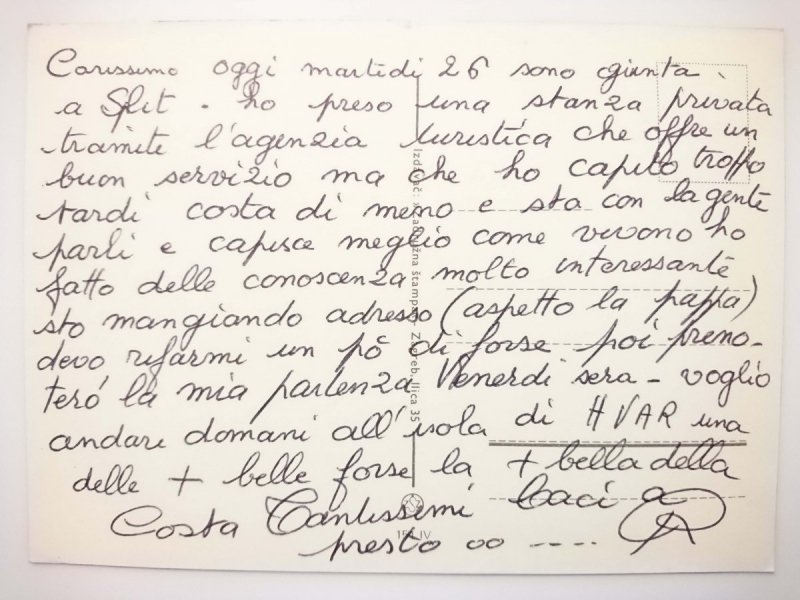 Carissimo oggi martedi 26 sono giunta
a Split - ho preso una stanza privata
tramite l'agenzia turistica che offre un
buon servizio ma che ho capito troppo
tardi costa di meno e sta con la gente
parli e capisce meglio come vivono ho
fatto delle conoscenza molto interessante
sto mangiando adresso (aspetto la pappa)
devo rifarmi un pò di forse poi preno-
teró la mia partenza Venerdi sera - voglio
andare domani all'isola di HVAR una
delle + belle forse la + bella della
Costa Tantissimi baci a
presto oo ----
Izdavač: Zadružna štampa, Zagreb, Ilica 35